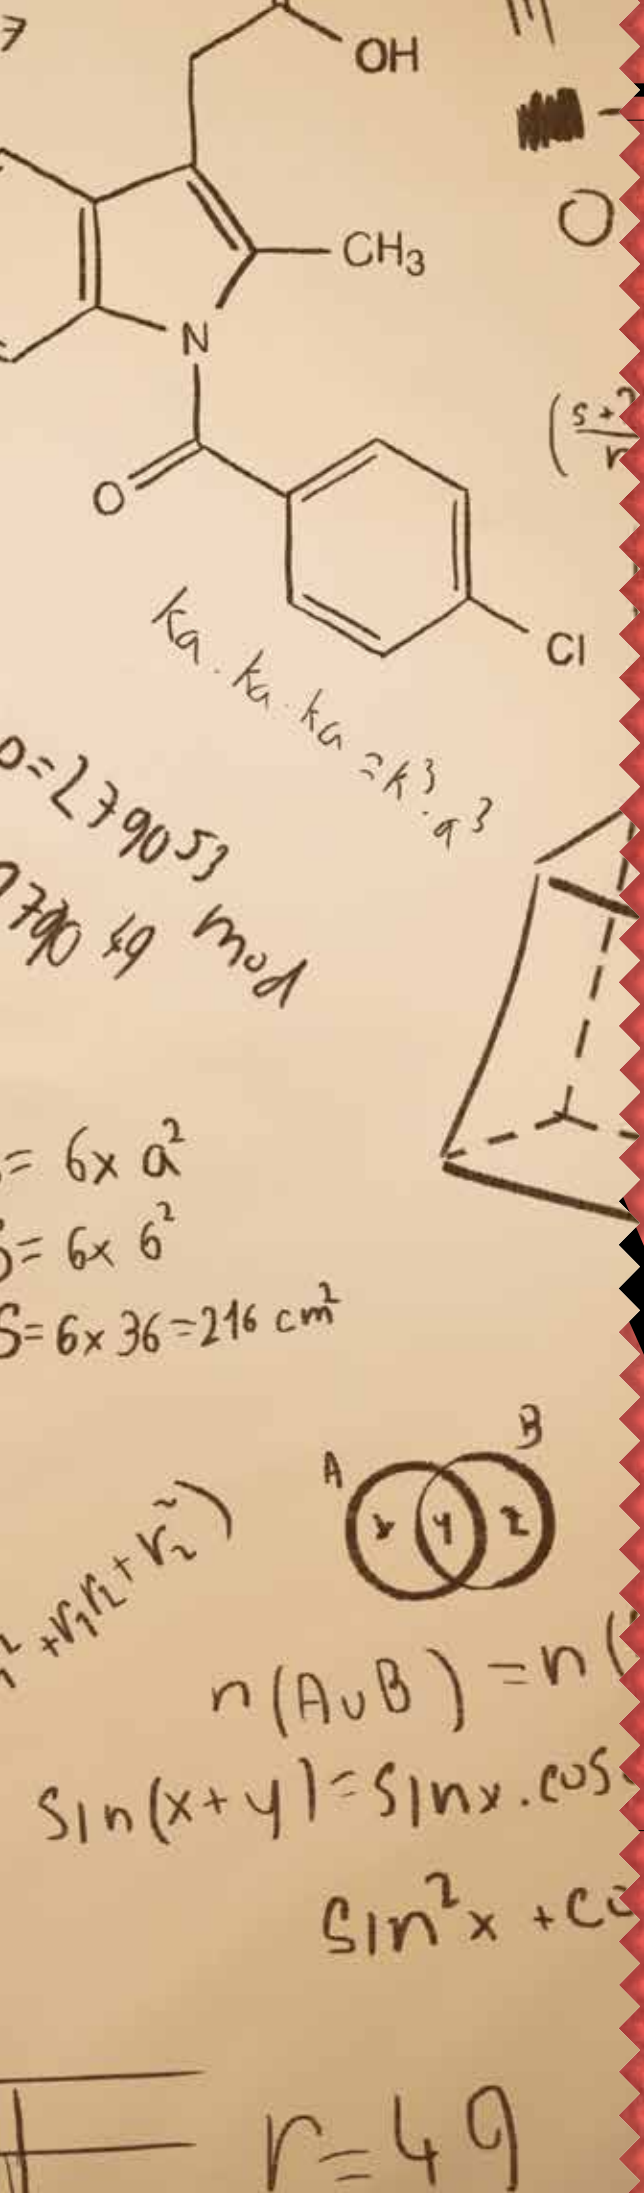 7
OH
CH₃
O
N
O
Cl
ka · ka · ka = k³ · a³
=279053
79049 mod
= 6x a²
S= 6x 6²
S= 6x36=216 cm²
A B
x y z
+r₁r₂+r₂²)
n(A∪B) = n(
sin(x+y)=sinx.cos
sin²x +co
r=49